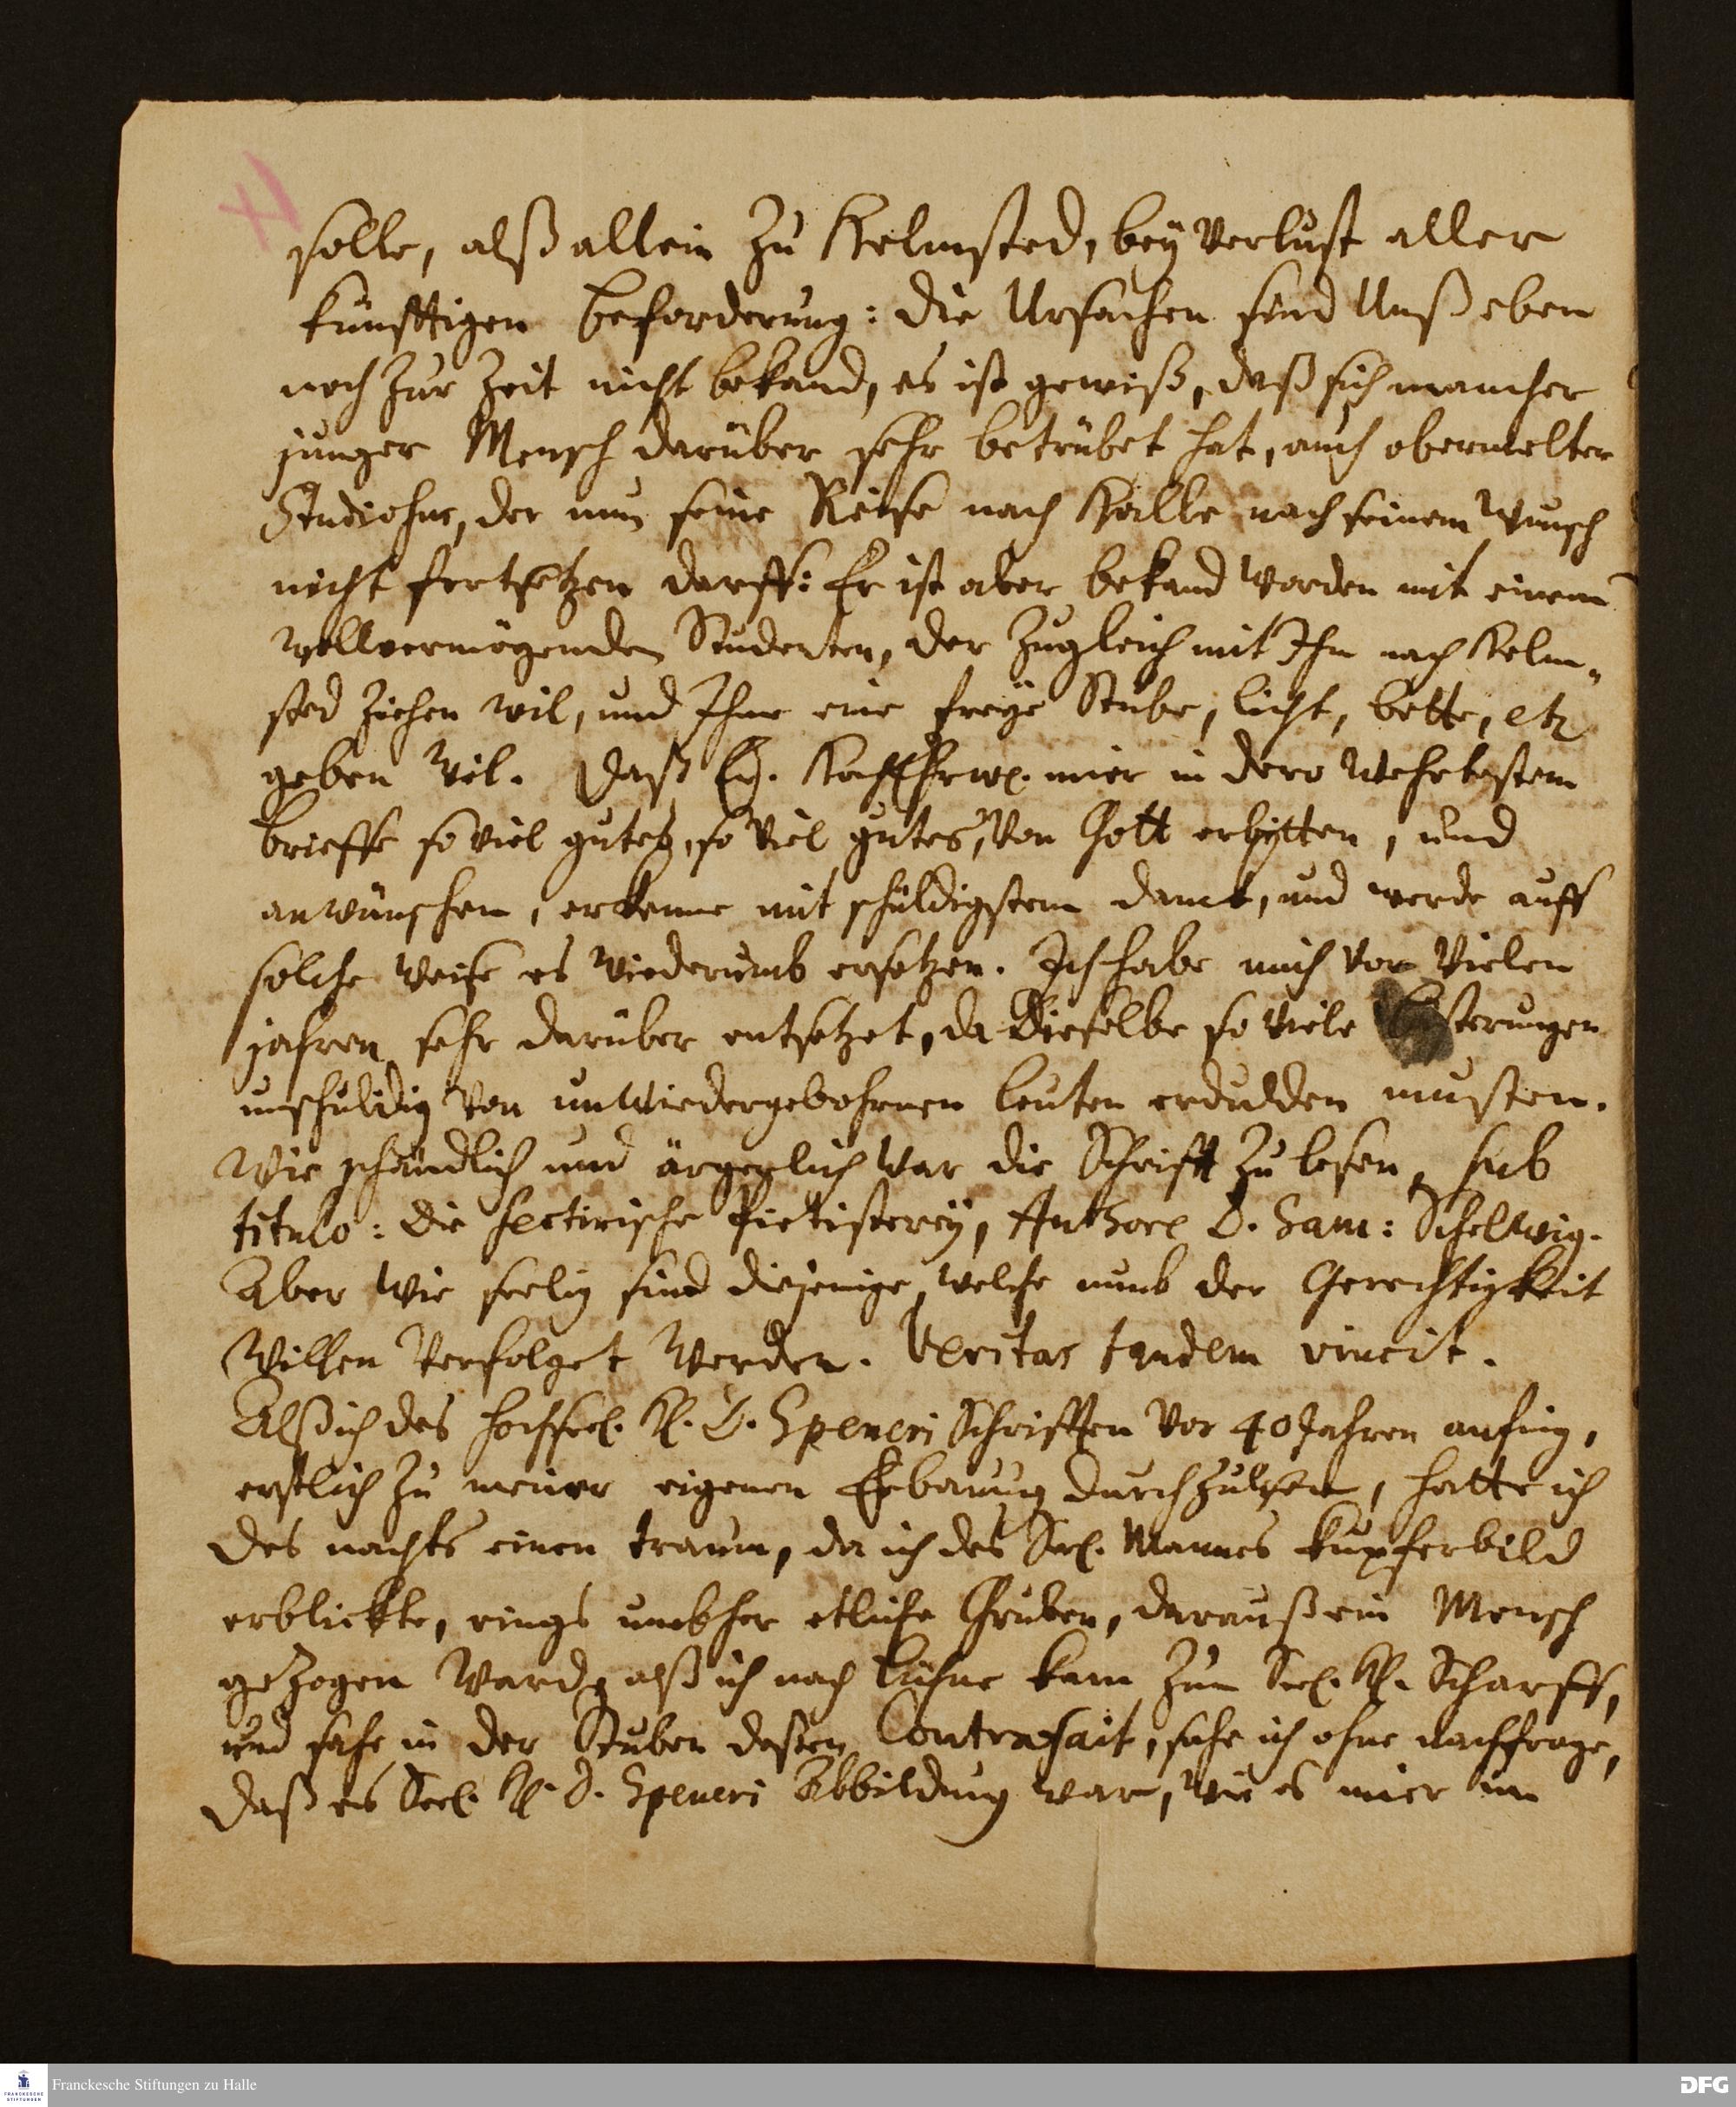 4
solle, alß allein zu Helmsted, bey Verlust aller
künfftigen beforderung: die Ursachen sind Unß eben
noch zur Zeit nicht bekand, es ist gewiß, daß sich mancher
junger Mensch darüber sehr betrübet hat, auch obermelter
der nun seine Reise nach Halle nach seinem Wunsch
nicht fortsetzen darff: Er ist aber bekand worden mit einem
wollvermögenden Studenten, der zugleich mit Ihm nach Helm„
sted ziehen wil, und Ihme eine freye Stube, licht, bette, etc
geben wil. Daß Ew. HochEhrw. mier in dero Wehrtestem
brieffe so viel gutes, so viel gutes, von Gott erbitten, und
anwünschen, erkenne mit schuldigstem danck, und werde auff
solche weise es wiederumb ersetzen. Ich habe mich vor vielen
jahren sehr darüber entsetzet, da dieselbe so viele Lästerungen
unschuldig von unwiedergebohrnen leuten erdulden musten.
Wie schändlich und ärgerlich war die Schrifft zu lesen, sub
titulo: die sectirische Pietisterey, Authore D. Sam: Schelwig.
Aber wie seelig sind diejenige, welche umb der Gerechtigkeit
willen verfolget werden. Veritas tandem vincit.
Alß ich des hochseel. H. D. Speneri Schrifften vor 40 Jahren anfing,
erstlich zu meiner eigenen Erbauung durchzulesen, hatte ich
des nachts einen traum, da ich des Seel. Mannes kupferbild
erblickte, rings umbher etliche Gruben, darauß ein Mensch
gezogen ward, alß ich nach Lühne kam zum Seel. H. Scharff,
und sahe in der Stuben dessen Contrafait, sahe ich ohne nachfrage,
daß es Seel. H. D. Speneri Abbildung war, wie es mier im
Franckesche Stiftungen zu Halle
FRANCKESCHE STIFTUNGEN
DFG